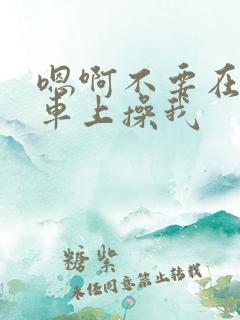 嗯啊不要在
车上操我
糖紫
未经同意禁止转载